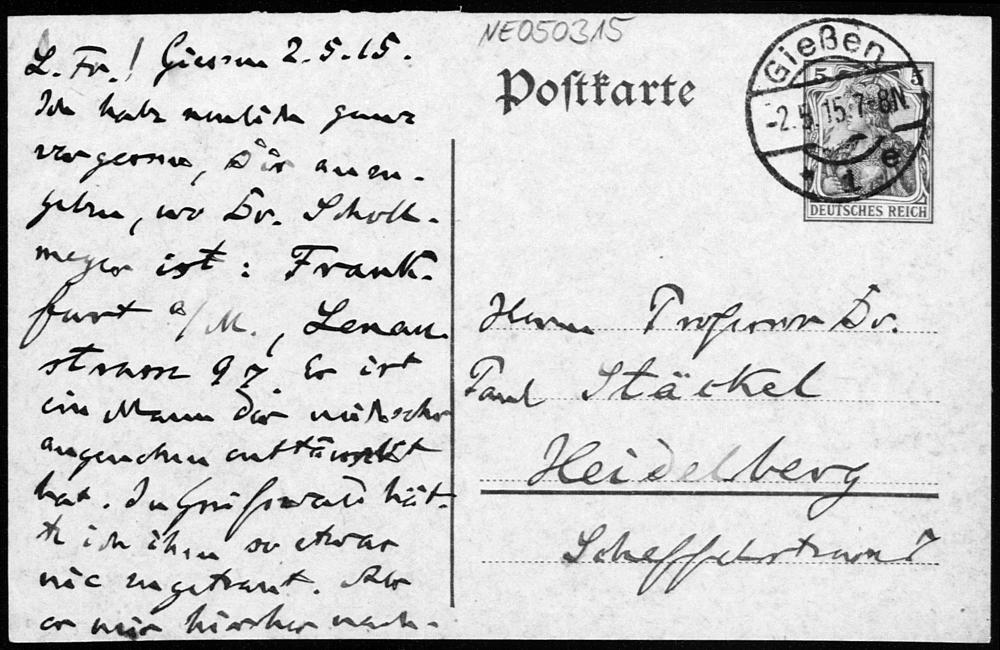 NE050315
L. Fr.! Giessen 2.5.15.
Ich habe neulich ganz
vergessen, Dir anzu-
geben, wo Dr. Scholl-
meyer ist: Frank-
furt a/M., Lenau
strasse 97. Er ist
ein Mann der mich sehr
angenehm enttäuscht
hat. In Greifswald hät-
te ich ihm so etwas
nie zugetraut. Als
er mir hierher nach-
Postkarte
Gießen
-2.5.15.7-8N
* 1 e
5 5
DEUTSCHES REICH
Herrn Professor Dr.
Paul Stäckel
Heidelberg
Scheffelstrasse